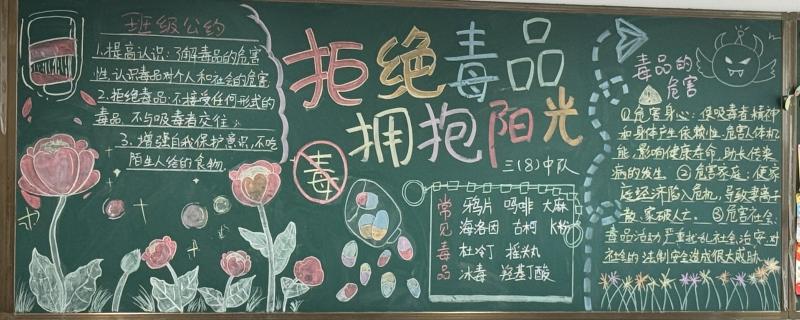 班级公约
1.提高认识:了解毒品的危害
性,认识毒品对个人和社会的危害
2.拒绝毒品:不接受任何形式的
毒品,不与吸毒者交往
3.增强自我保护意识,不吃
陌生人给的食物
拒绝毒品
拥抱阳光
三(8)中队
毒
常见毒品
鸦片 吗啡 大麻
海洛因 古柯 K粉
杜冷丁 摇头丸
冰毒 羟基丁酸
毒品的
危害
①危害身心:使吸毒者精神
和身体产生依赖性,危害人体机
能,影响健康寿命,助长传染
病的发生。②危害家庭:使家
庭经济陷入危机,导致妻离子
散、家破人亡。③危害社会:
毒品活动严重扰乱社会治安,对
社会的法制安全造成很大威胁